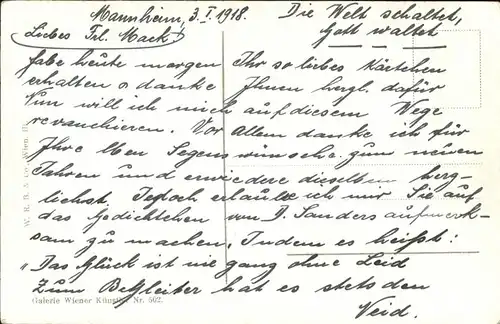 Mannheim, 3. I. 1918.
Die Welt schaltet,
Gott waltet
Liebes Frl. Mack!
Habe heute morgen Ihr so liebes Kärtchen
erhalten u danke Ihnen hergl. dafür
Nun will ich mich auf diesem Wege
revanchieren. Vor Allem danke ich für
Ihre lben Segenswünsche zum neuen
Jahren und erwiedere dieselben herg-
lichst. Jedoch erlaube ich mir Sie auf
das Gedichtchen von D. Sanders aufmerk-
sam zu machen. Indem es heißt:
„Das Glück ist nie gang ohne Leid
Zum Begleiter hat es stets den
Neid.
Galerie Wiener Künstler Nr. 502.
W. R. B. & Co. Wien III